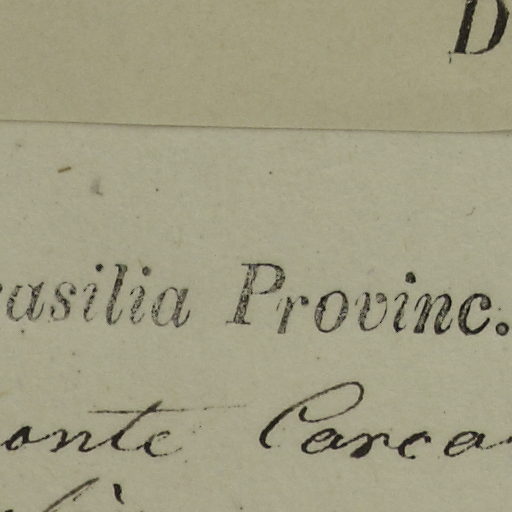 D
rasilia Provinc.
onte Carca